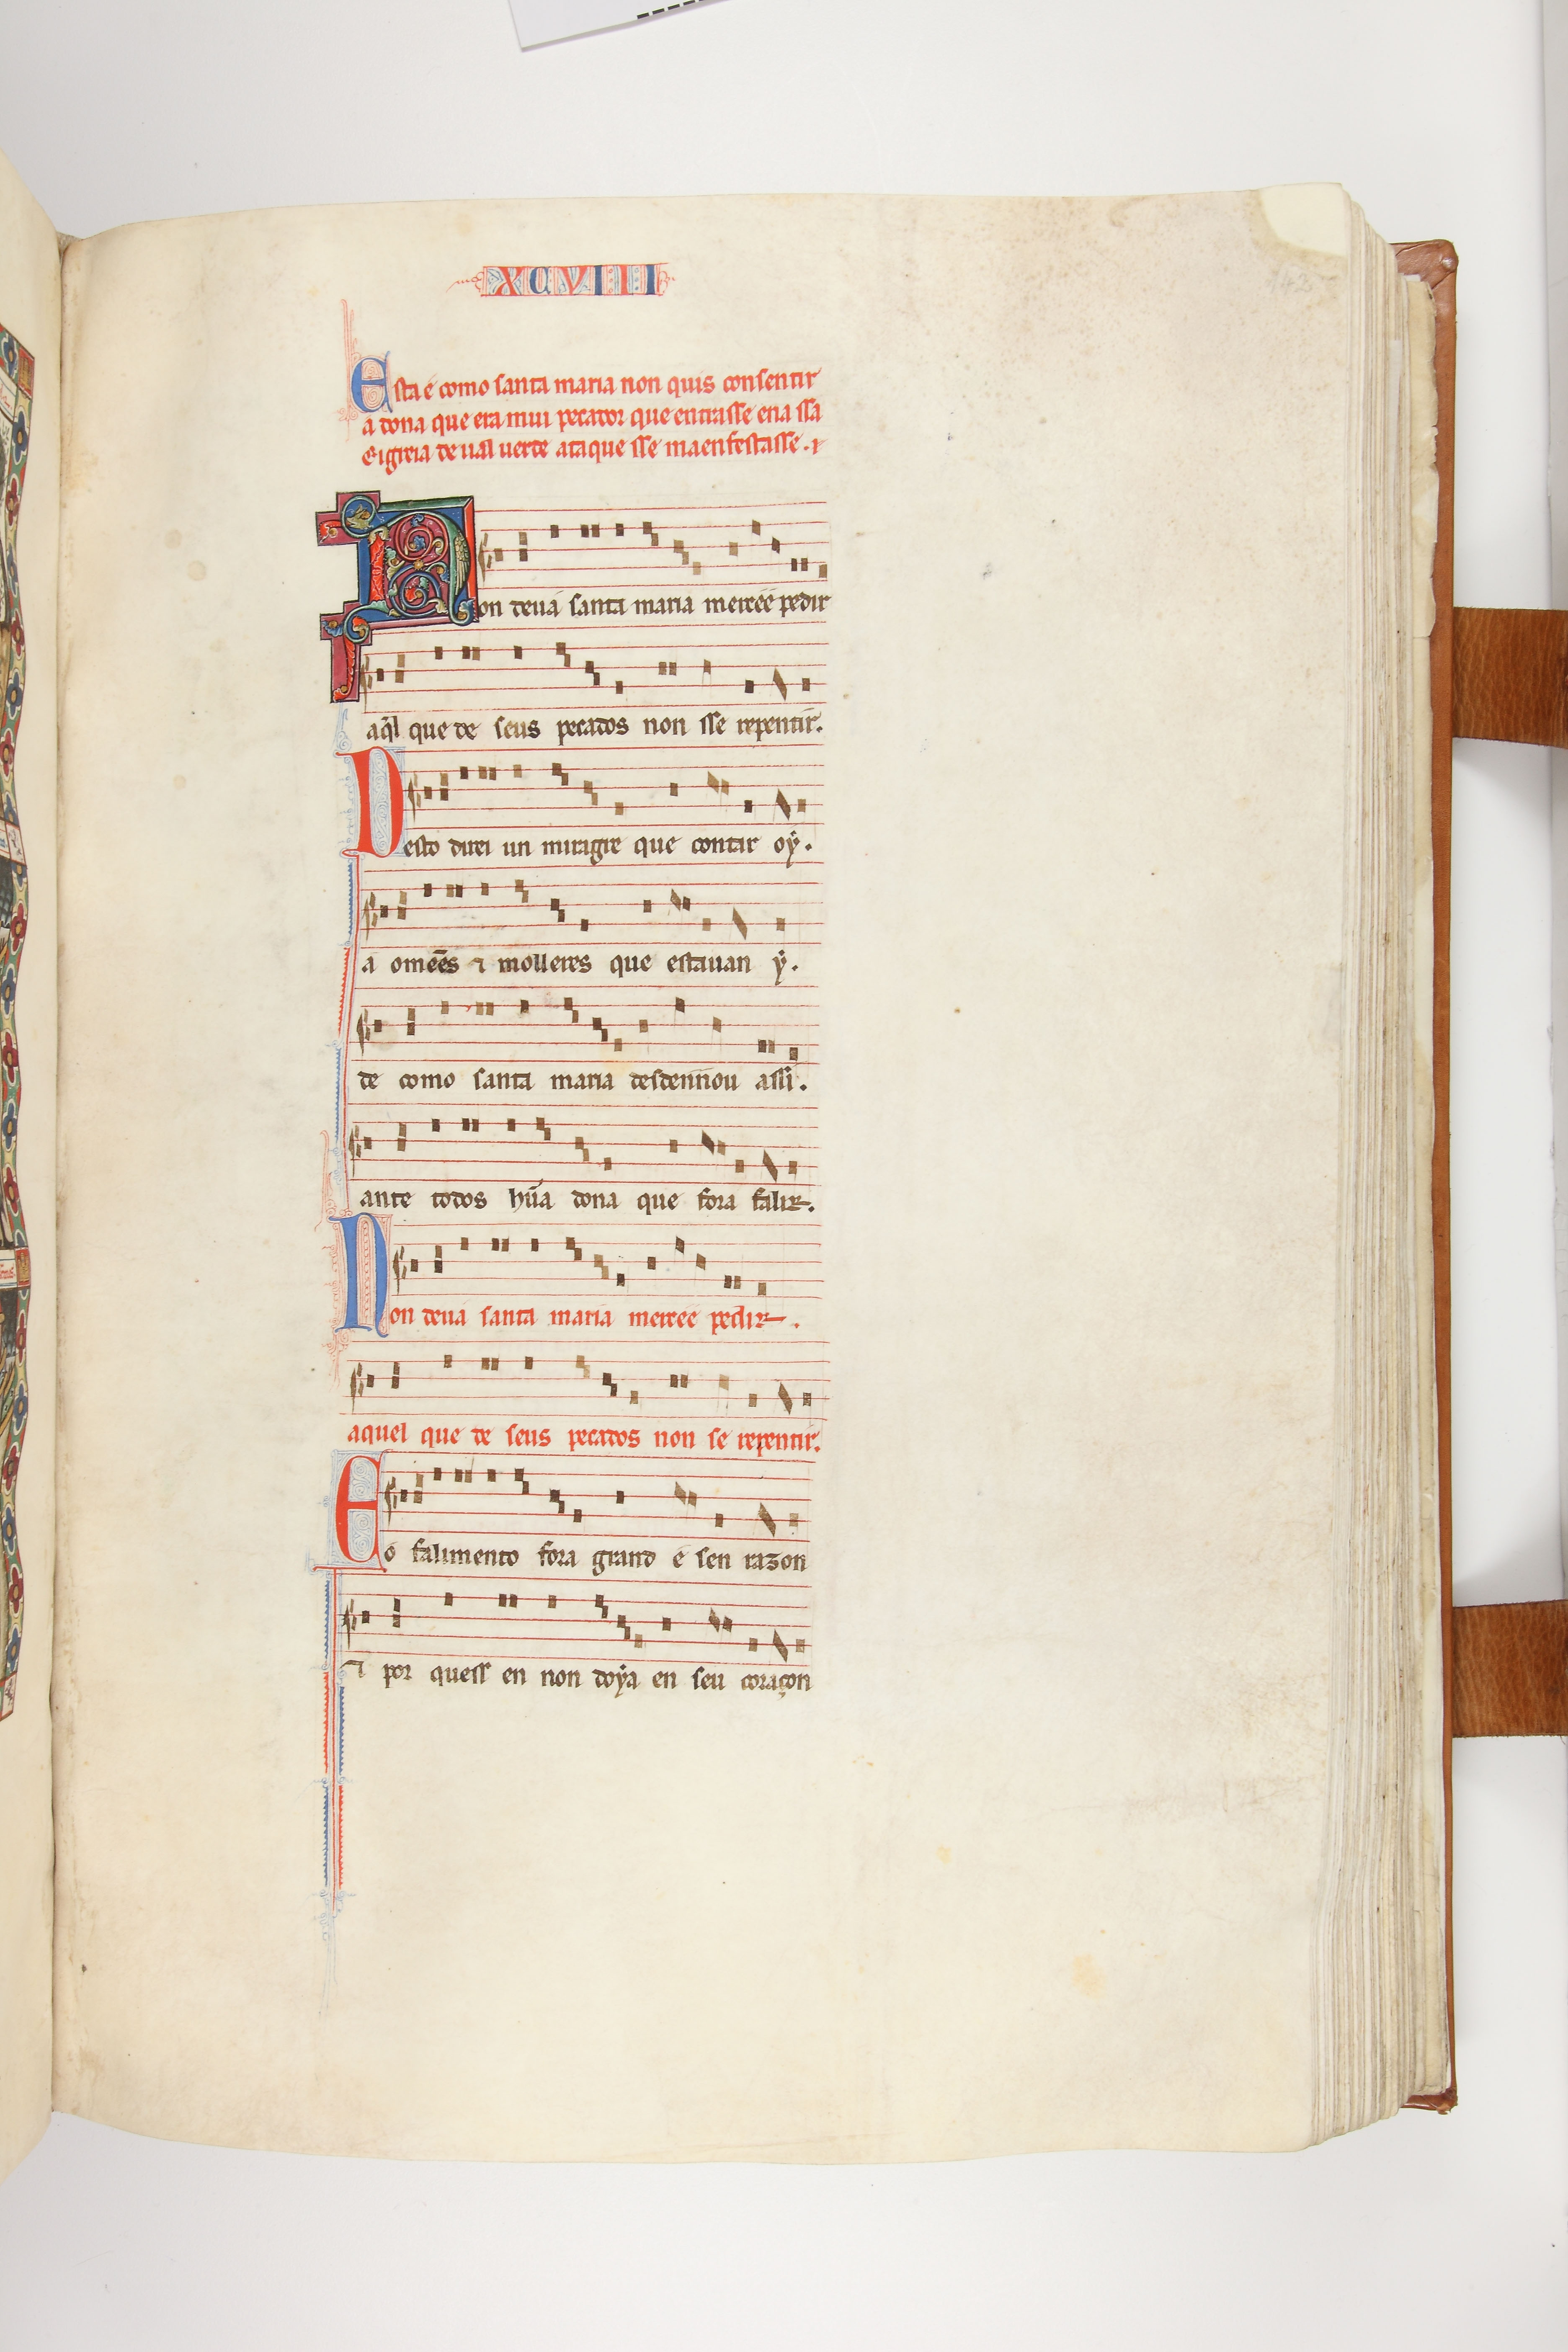 XCVIII
Esta é como santa maria non quis consentir
a dona que era mui pecador que entrasse ena ssa
eigreia de ual uerde ata que sse maenfestasse. ⁊
Non deuá santa maria merceé pedir
aq̃l que de seus pecados non sse repentir.
Desto direi un miragre que contar oẏ.
a omēes ⁊ molleres que estauan ẏ.
de como santa maria desdennou assi.
ante todos hũa dona que fora falir.
Non deuá santa maria merceé pedir.
aquel que de seus pecados non se repentir.
Eo falimento fora grand e sen razon
⁊ por quess en non doẏa en seu coraçon